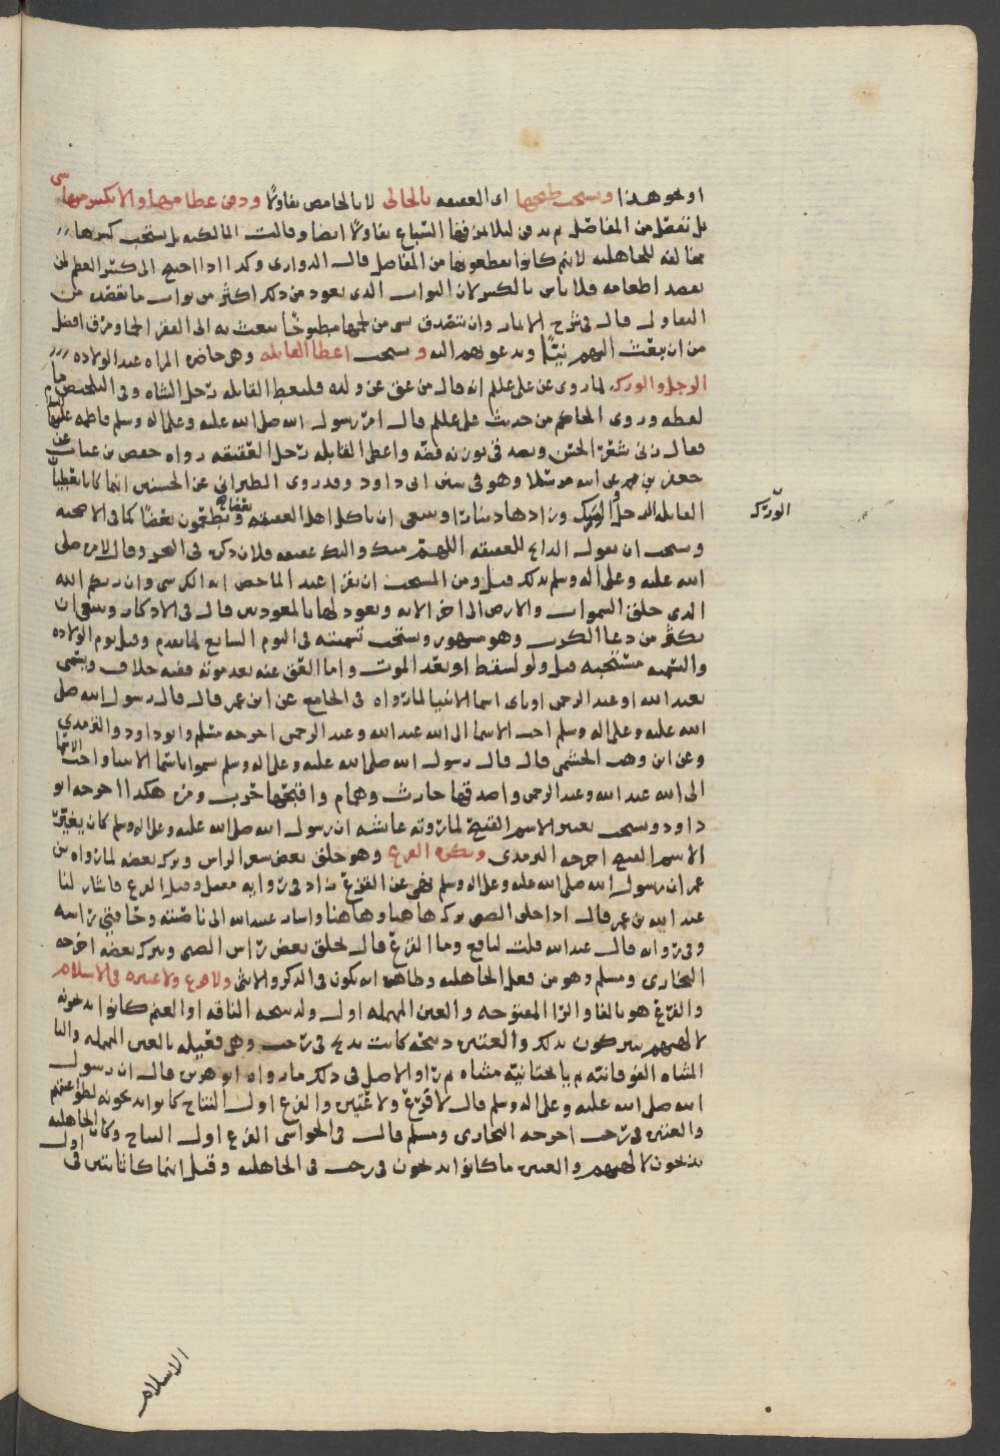 او نحو هذا ويستحب طبخها اي العقيقه بالحالي لا بالحامض تفاولا ودفن عظامها والا يكسر منها شي
بل تفصل من المفاصل ثم يدفن ليلا من فيها السباع تفاولا ايضا وقالت المالكيه بل يستحب كسرها
مخالفه للجاهليه لانهم كانوا يقطعونها من المفاصل قال الدواري وكذا اذا احتيج الى كسر العظم لمن
يعصد اطعامه فلا باس بالكسر لان الثواب الذي يعود من ذلك اكثر من ثواب ما يقصد من
التفاول قال في شرح الاثمار وان يتصدق بشي من لحمها مطبوخا يبعث به الى الفقرا لحما ومرقا افضل
من ان يبعث اليهم نيئا ويدعوهم اليه ويستحب اعطا القابله وهي حاضره المراه عند الولاده
الرجل والورك لما روي عن علي علم انه قال من عق عن ولده فليعط القابله رجل الشاه وفي التلخيص ما
لفظه وروى الحاكم من حديث علي علم قال امر رسول الله صلى الله عليه وعلى اله وسلم فاطمه عليها
فقال زني شعر الحسن وتصدقي بوزنه فضه واعطي القابله رجل العقيقه رواه حفص بن غياث عن
جعفر بن محمد عن ابيه مرسلا وهو في سنن ابي داود وقد روى الطبراني عن الحسنين انهما كانا يعطيان
القابله الرجل والورك وزادها دينارا وينبغي ان ياكل اهل العقيقه بعضها ويطعمون بعضا كما في الاضحيه
الورك
ويستحب ان يقول الذابح للعقيقه اللهم منك واليك عقيقه فلان ذكره في البحر وقال لامره صلى
الله عليه وعلى اله وسلم بذلك قيل ومن المستحب ان يقرا عند الماخض ايه الكرسي وان ربكم الله
الذي خلق السموات والارض الى اخر الايه ويعوذ لها بالمعوذتين قال في الاذكار وينبغي ان
يكثر من دعا الكرب وهو مشهور ويستحب تسميته في اليوم السابع لما تقدم وقيل يوم الولاده
والتسميه مستحبه قيل ولو لسقط او بعد الموت واما العق عنه بعد موته ففيه خلاف ويسمى
بعبد الله او عبد الرحمن او باي اسما الانبيا لما رواه في الجامع عن ابن عمر قال قال رسول الله صلى
الله عليه وعلى اله وسلم احب الاسما الى الله عبد الله وعبد الرحمن اخرجه مسلم وابو داود والترمذي
وعن ابن وهب الجشمي قال قال رسول الله صلى الله عليه وعلى اله وسلم سموا باسما الانبيا واحب الاسما
الى الله عبد الله وعبد الرحمن واصدقها حارث وهمام واقبحها حرب ومره هكذا اخرجه ابو
داود ويستحب تغيير الاسم القبيح لما روته عايشه ان رسول الله صلى الله عليه وعلى اله وسلم كان يغير
الاسم القبيح اخرجه الترمذي ويكره القزع وهو حلق بعض شعر الراس وترك بعضه لما رواه بن
عمر ان رسول الله صلى الله عليه وعلى اله وسلم نهى عن القزع زاد في روايه فقيل وما القزع فاشار لنا
عبد الله بن عمر قال اذا حلق الصبي ترك هاهنا وهاهنا وهاهنا واشار عبيد الله الى ناصيته وجانبي راسه
وفي روايه قال عبيد الله قلت لنافع وما القزع قال يحلق بعض راس الصبي ويترك بعضه اخرجه
البخاري ومسلم وهو من فعل الجاهليه وظاهره انه يكون في الذكر والانثى ولا فرع ولا عتيره في الاسلام
والفرع هو بالفا والرا المفتوحه والعين المهمله اول ولد تنتجه الناقه او الغنم كانوا يذبحونه
لالهتهم يتبركون بذلك والعتيره ذبيحه كانت تذبح في رجب وهي فعيله بالعين المهمله والتا
المثناه الفوقانيه ثم يا تحتانيه مثناه ثم را والاصل في ذلك ما رواه ابو هريره قال ان رسول
الله صلى الله عليه وعلى اله وسلم قال لا فرع ولا عتيره والفرع اول النتاج كانوا يذبحونه لطواغيتهم
والعتيره في رجب اخرجه البخاري ومسلم قال في الحواشي الفرع اول النتاج وكان الجاهليه
يذبحون لالهتهم والعتيره ما كانوا يذبحون في رجب في الجاهليه وقيل انهما كانا سنتين في اول
الاسلام